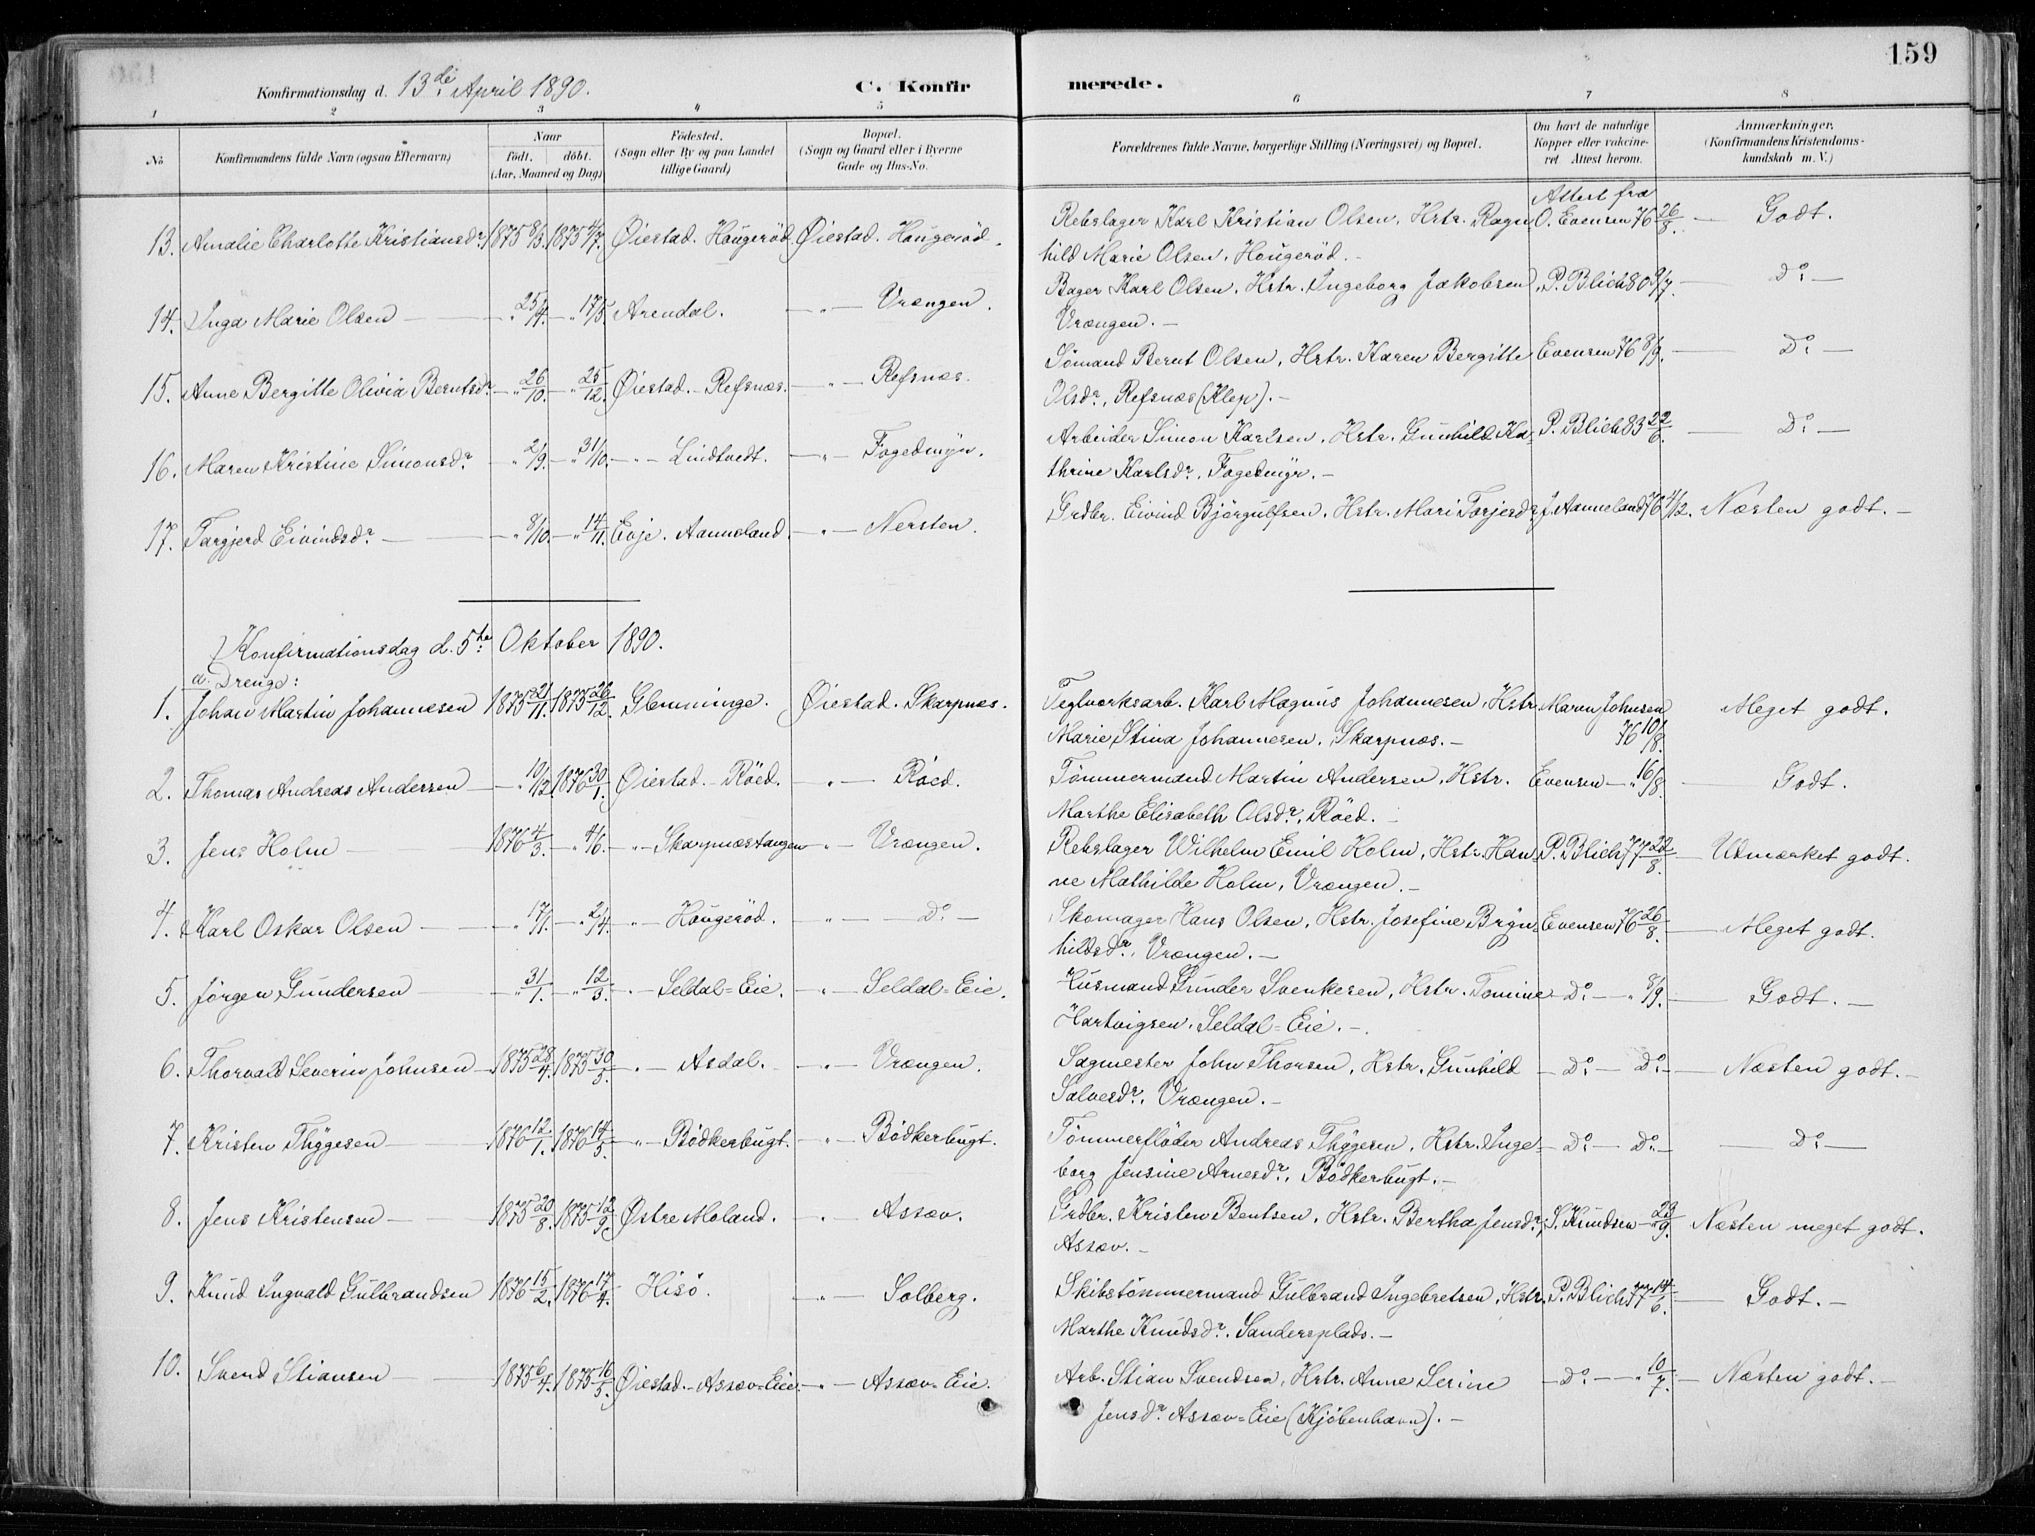 159
Konfirmationsdag d. 13de April 1890. C. Konfirmerede.
1 2 3 4 5 6 7 8
No. Konfirmandens fulde Navn (ogsaa Efternavn) Naar født. døbt. (Aar, Maaned og Dag) Födested. (Sogn eller By og paa Landet tillige Gaard) Bopæl. (Sogn og Gaard eller i Byerne Gade og Hus-No. Forældrenes fulde Navne, borgerlige Stilling (Næringsvei) og Bopæl. Om havt de naturlige Kopper eller vakcineret Attest herom. Anmærkninger. (Konfirmandens Kristendomskundskab m. V.)
13. Amalie Charlotte Kristiansdr. 1875 8/3. 1875 4/7. Øiestad. Hougerød Øiestad. Hougerød. Rebslager Karl Kristian Olsen, Hstr. Ragn- Attest fra O. Evensen 76 26/8. — Godt.
hild Marie Olsen, Hougerød. —
14. Inga Marie Olsen — " 25/4. — " 17/5. Arendal. — " — Vrængen. Bager Karl Olsen, Hstr. Ingeborg Jakobsen, P. Blich 80 9/7. — Do. —
Vrængen. —
15. Anne Bergitte Olivia Berntsdr. — " 26/10. — " 25/12. Øiestad. - Refsnæs. — " — Refsnæs. Sømand Bernt Olsen, Hstr. Karen Bergitte Evensen 76 8/9. — Do. —
Olsdr., Refsnæs (Klep). —
16. Maren Kristine Simonsdr. — " 2/9. — " 31/10. — " — Lindtvedt. — " — Fogedmyr. Arbeider Simon Karlsen, Hstr. Gunhild Ka- P. Blich 83 22/6. — Do. —
thrine Karlsdr., Fogedmyr. —
17. Targjerd Eivindsdr. — " 8/10. — " 14/11. Evje. Aanneland. — " — Nersten. Grdbr. Eivind Bjørgulfsen, Hstr. Mari Torjersdr. J. Aanneland 76 4/12. Næsten godt. —
Konfirmationsdag d. 5te Oktober 1890.
a. Drenge:
1. Johan Martin Johannesen 1875 21/11. 1875 26/12. Glemminge. Øiestad. Skarpnæs. Teglværksarb. Karl Magnus Johannesen, Hstr. Maren Johnsen Meget godt.
Marie Stina Johannesen, Skarpnæs. — 76 10/8.
2. Thomas Andreas Andersen — " 19/12. 1876 30/1. Øiestad. - Röed. — " — Röed. Tømmermand Martin Andersen, Hstr. Evensen — " 16/8. — Godt.
Marthe Elisabeth Olsdr., Röed. —
3. Jens Holm — 1876 4/3. — " 4/6. — " — Skarpnæstangen — " — Vrængen. Rebslager Wilhelm Emil Holm, Hstr. Han- P. Blich 77 22/8. — Udmærket godt.
ne Mathilde Holm, Vrængen. —
4. Karl Oskar Olsen — " 17/1. — " 2/4. — " — Hougerød. — " — Do. — Skomager Hans Olsen, Hstr. Josefine Bryn- Evensen 76 26/8. — Meget godt.
hildsdr., Vrængen. —
5. Jørgen Gundersen — " 31/1. — " 12/3. — " — Seldal=Eie. — " — Seldal=Eie. Husmand Gunder Svenkesen, Hstr. Tomine — Do. — " 8/9. — Godt. —
Hartvigsen, Seldal=Eie. —
6. Thorvald Severin Johnsen 1875 28/4. 1875 30/5. — " — Asdal. — " — Vrængen. Sagmester John Thorsen, Hstr. Gunhild — Do. — Do. — Næsten godt. —
Salvesdr., Vrængen. —
7. Kristen Thygesen — 1876 12/1. 1876 14/5. — " — Bødkerbugt. — " — Bødkerbugt. Tømmerfløder Andreas Thygesen, Hstr. Inge- — Do. — Do. — Do. —
borg Jensine Arnesdr., Bødkerbugt. —
8. Jens Kristensen — 1875 20/8. 1875 12/9. Østre Moland. — " — Assæv. Grdbr. Kristen Bentsen, Hstr. Bertha Jensdr., S. Knudsen — " 23/9. Næsten meget godt.
Assæv. —
9. Knud Ingvald Gulbrandsen 1876 15/2. 1876 17/4. Hisø. — " — Solberg. Skibstømmermand Gulbrand Ingebretsen, Hstr. P. Blich 77 14/6. — Godt. —
Marthe Knudsdr., Sandersplads. —
10. Svend Stiansen — 1875 6/4. 1875 16/5. Øiestad. - Assæv=Eie. — " — Assæv=Eie. Arb. Stian Svendsen, Hstr. Anne Serine — Do. — " 10/7. — Næsten godt. —
Jensdr. Assæv=Eie (Kjøbenhavn). —